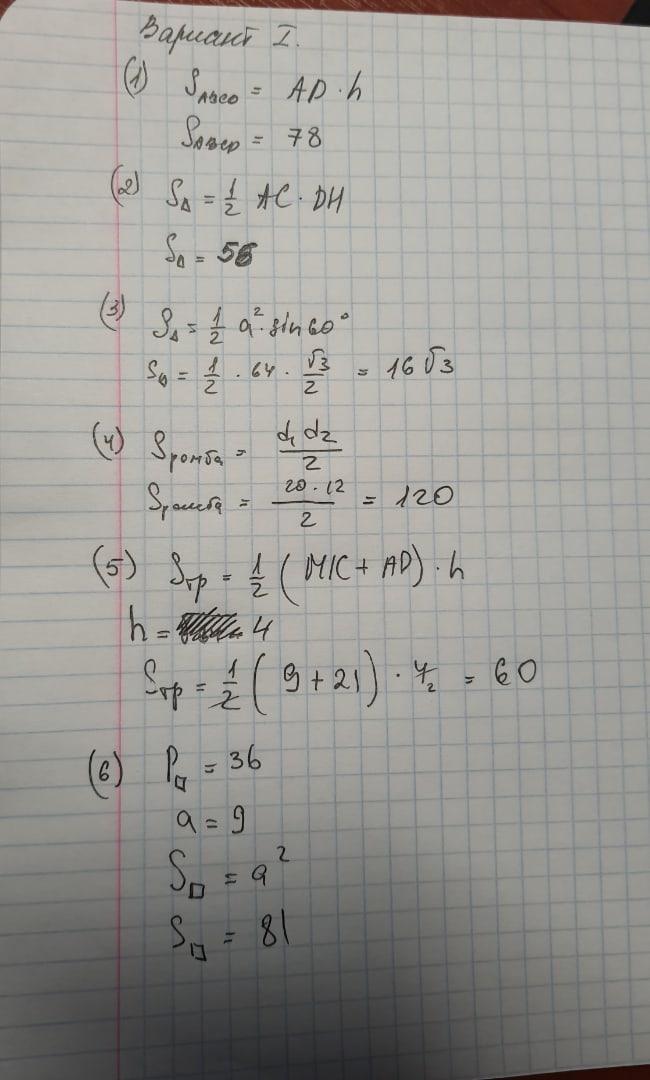 Вариант I.
(1) SABCD = AD · h
SABCD = 78
(2) S△ = 1/2 AC · DH
S△ = 56
(3) S△ = 1/2 a² · sin 60°
S△ = 1/2 · 64 · √3/2 = 16√3
(4) Sромба = d₁ d₂/2
Sромба = 20 · 12/2 = 120
(5) Sтр = 1/2 (MK + AD) · h
h = 4
Sтр = 1/2 (9 + 21) · 4/2 = 60
(6) P□ = 36
a = 9
S□ = a²
S□ = 81